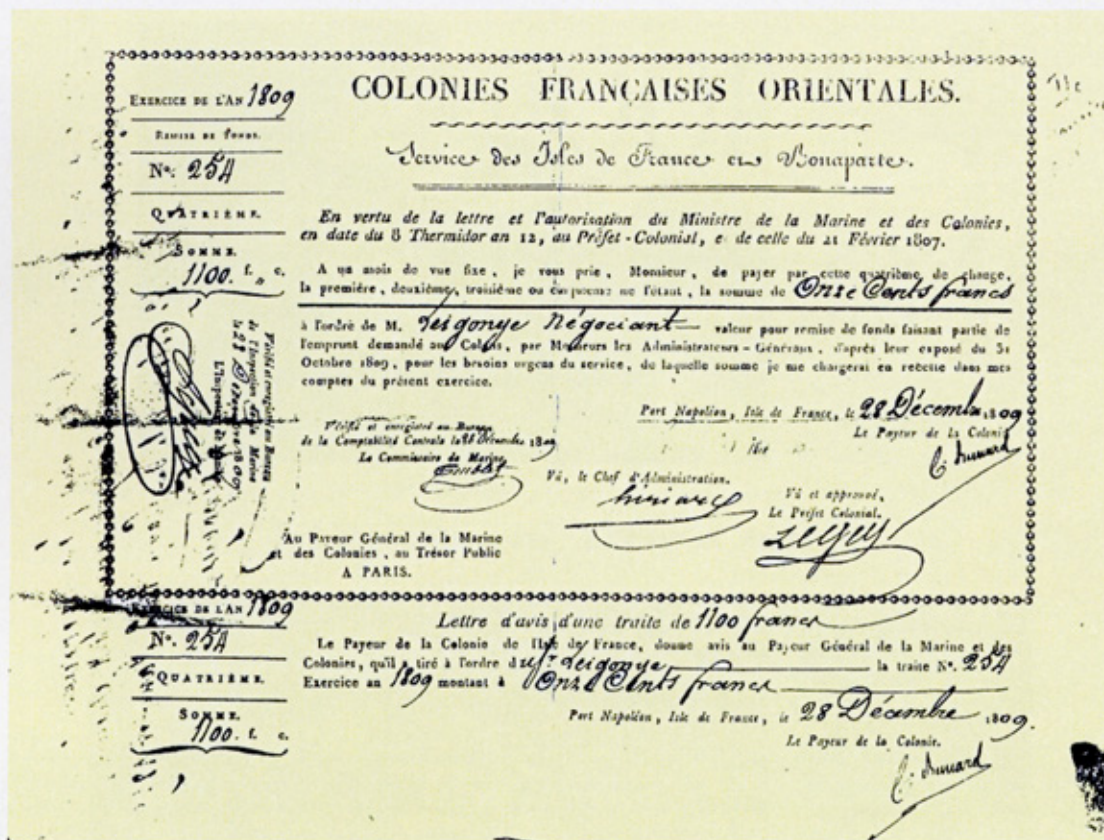 EXERCICE DE L'AN 1809
REMISE DE FONDS.
N°. 254
QUATRIÈME.
SOMME.
1100. f. „ c.
COLONIES FRANÇAISES ORIENTALES.
Service des Isles de France et Bonaparte.
En vertu de la lettre et l'autorisation du Ministre de la Marine et des Colonies,
en date du 8 Thermidor an 12, au Préfet-Colonial, e de celle du 21 Février 1807.
A un mois de vue fixe, je vous prie, Monsieur, de payer par cette quatrième de change,
la première, deuxième, troisième ou cinquième ne l'étant, la somme de Onze Cents francs
à l'ordre de M. Leigonye Négociant valeur pour remise de fonds faisant partie de
l'emprunt demandé aux Colons, par Messieurs les Administrateurs-Généraux, d'après leur exposé du 31
Octobre 1809, pour les besoins urgens du service, de laquelle somme je me chargerai en recette dans mes
comptes du présent exercice.
Port Napoléon, Isle de France, le 28 Décembre 1809
Le Payeur de la Colonie
Vérifié et enregistré au Bureau
de la Comptabilité Centrale le 28 Décembre 1809
Le Commissaire de Marine
Vu, le Chef d'Administration.
Vû et approuvé,
Le Préfet Colonial.
Vérifié et enregistré au Bureau
de l'Inspection de la Marine
Au Payeur Général de la Marine
et des Colonies, au Trésor Public
A PARIS.
EXERCICE DE L'AN 1809
N°. 254
QUATRIÈME.
SOMME.
1100. f. c.
Lettre d'avis d'une traite de 1100 francs
Le Payeur de la Colonie de l'Isle de France, donne avis au Payeur Général de la Marine et des
Colonies, qu'il a tiré à l'ordre d Leigonye la traite N°. 254
Exercice an 1809 montant à Onze Cents francs
Port Napoléon, Isle de France, le 28 Décembre 1809.
Le Payeur de la Colonie.